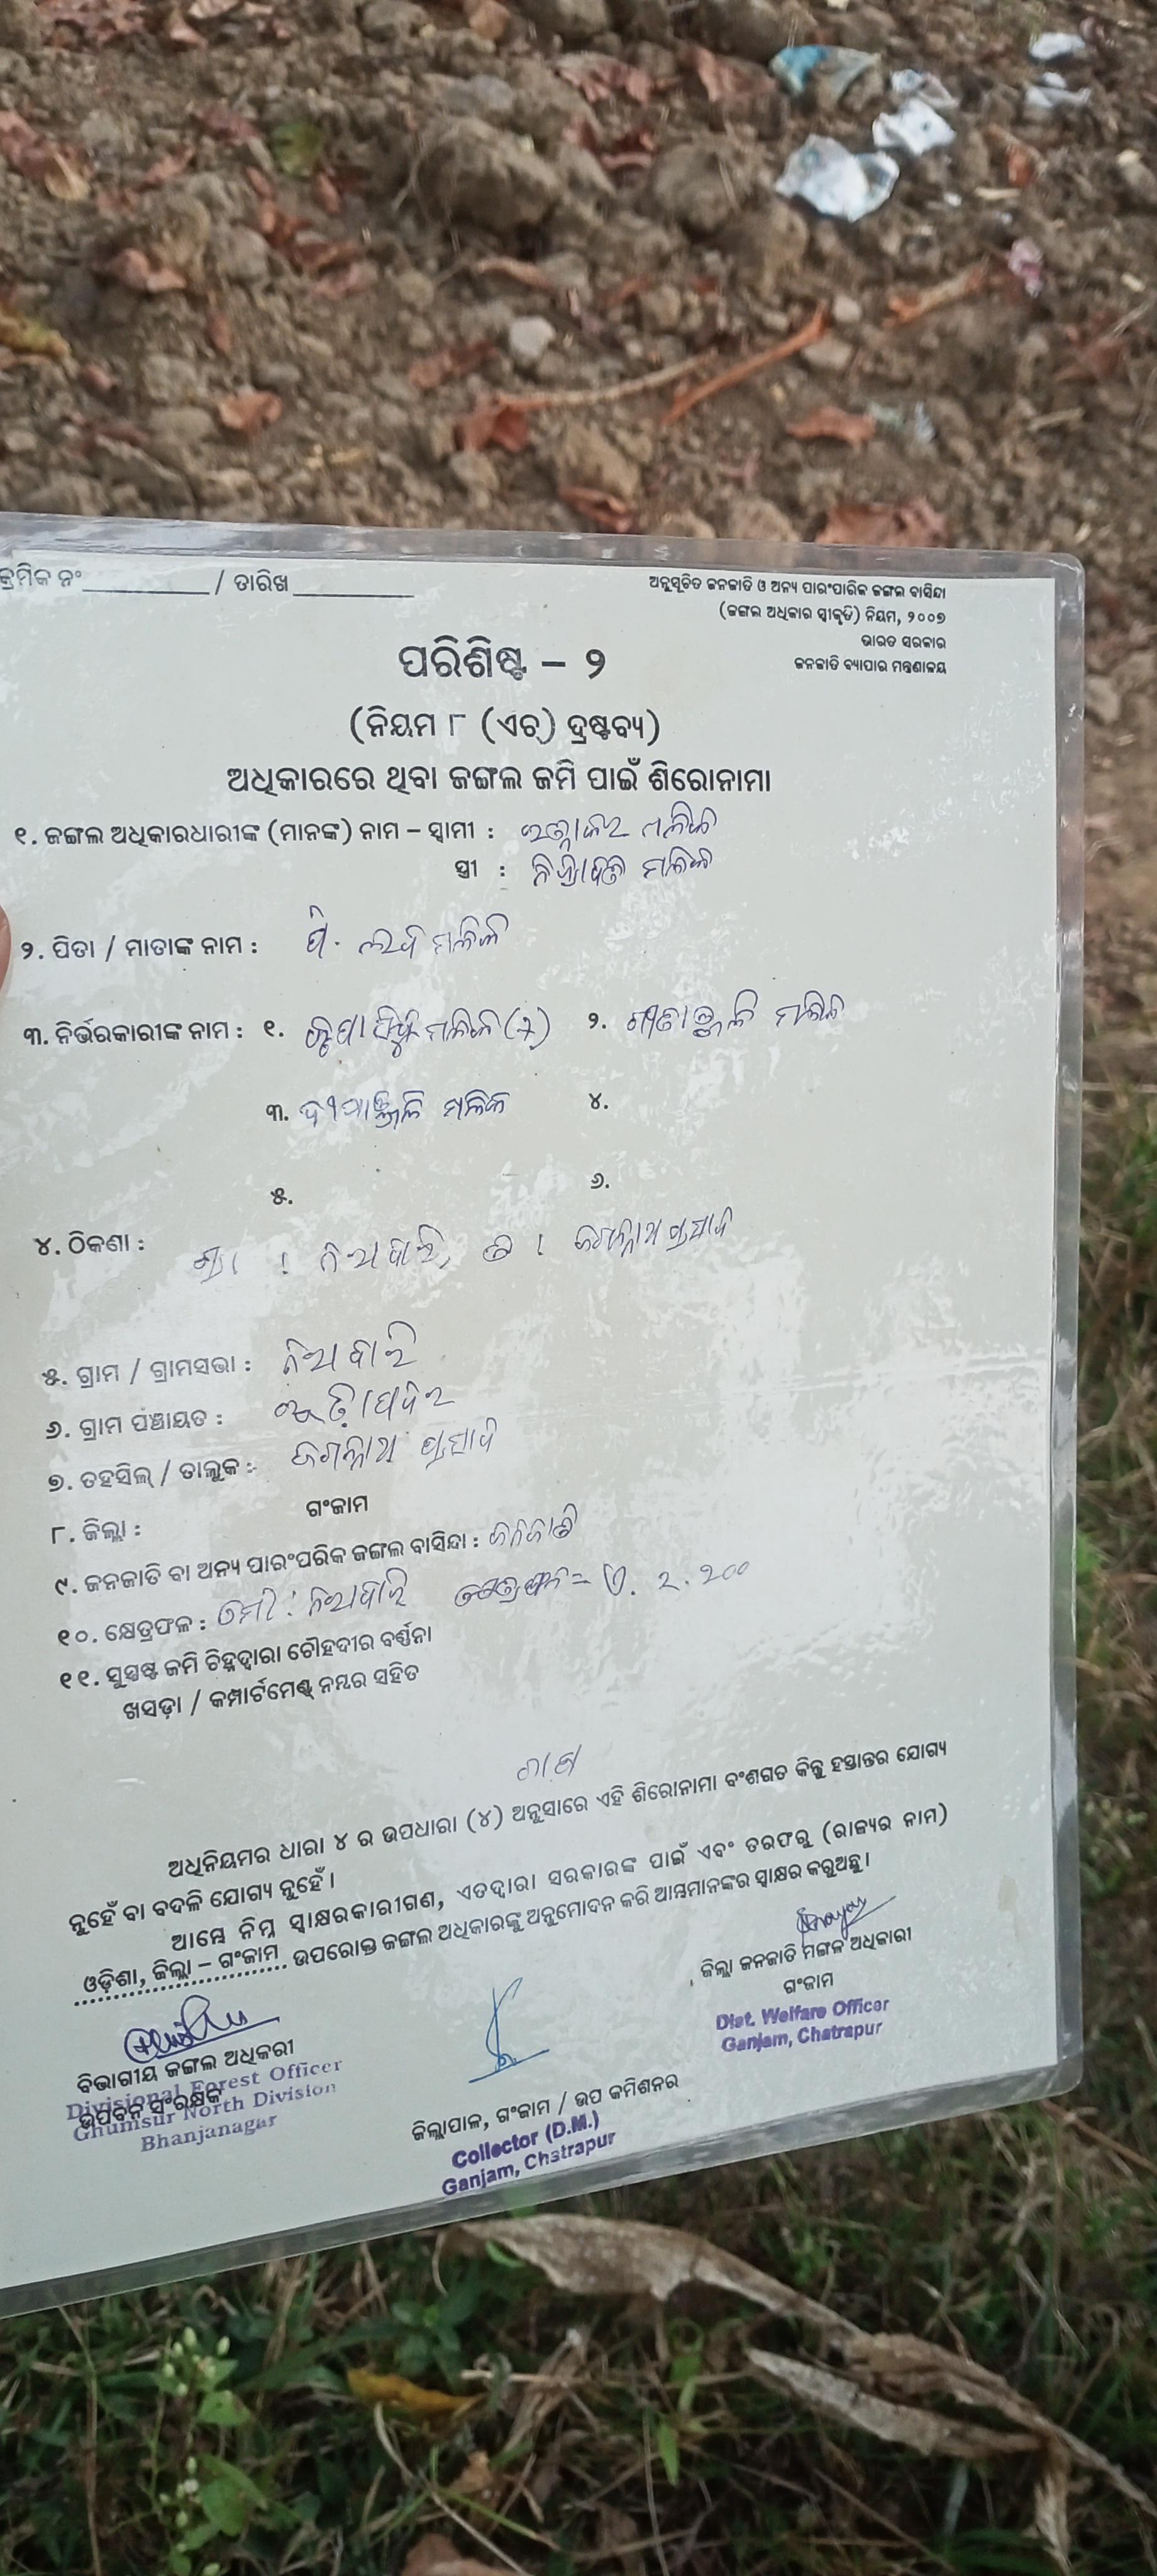 କ୍ରମିକ ନଂ / ତାରିଖ
ଅନୁସୂଚିତ ଜନଜାତି ଓ ଅନ୍ୟ ପାରଂପାରିକ ଜଙ୍ଗଲ ବାସିନ୍ଦା
(ଜଙ୍ଗଲ ଅଧିକାର ସ୍ୱୀକୃତି) ନିୟମ, ୨୦୦୭
ଭାରତ ସରକାର
ଜନଜାତି ବ୍ୟାପାର ମନ୍ତ୍ରଣାଳୟ
ପରିଶିଷ୍ଟ – ୨
(ନିୟମ ୮ (ଏଚ୍) ଦ୍ରଷ୍ଟବ୍ୟ)
ଅଧିକାରରେ ଥିବା ଜଙ୍ଗଲ ଜମି ପାଇଁ ଶିରୋନାମା
୧. ଜଙ୍ଗଲ ଅଧିକାରଧାରୀଙ୍କ (ମାନଙ୍କ) ନାମ – ସ୍ୱାମୀ : ରତ୍ନାକର ମଲିକ
ସ୍ତ୍ରୀ : ମଲିକ
୨. ପିତା / ମାତାଙ୍କ ନାମ : ପି. ମଲିକ
୩. ନିର୍ଭରକାରୀଙ୍କ ନାମ : ୧. କୃପାସିନ୍ଧୁ ମଲିକ ୨. ଗୀତାଞ୍ଜଳି ମଲିକ
୩. ଦୀପାଞ୍ଜଳି ମଲିକ ୪.
୫. ୬.
୪. ଠିକଣା : ଗ୍ରା : ତ : ଜଗନ୍ନାଥ ପ୍ରସାଦ
୫. ଗ୍ରାମ / ଗ୍ରାମସଭା :
୬. ଗ୍ରାମ ପଞ୍ଚାୟତ :
୭. ତହସିଲ୍ / ତାଲୁକ : ଜଗନ୍ନାଥ ପ୍ରସାଦ
୮. ଜିଲ୍ଲା : ଗଂଜାମ
୯. ଜନଜାତି ବା ଅନ୍ୟ ପାରଂପରିକ ଜଙ୍ଗଲ ବାସିନ୍ଦା : ଜନଜାତି
୧୦. କ୍ଷେତ୍ରଫଳ : ମୌ : କ୍ଷେତ୍ରଫଳ = ଏ. ୨.୨୦୦
୧୧. ସୁସ୍ପଷ୍ଟ ଜମି ଚିହ୍ନଦ୍ୱାରା ଚୌହଦୀର ବର୍ଣ୍ଣନା
ଖସଡ଼ା / କମ୍ପାର୍ଟମେଣ୍ଟ୍ ନମ୍ବର ସହିତ
ଅଧିନିୟମର ଧାରା ୪ ର ଉପଧାରା (୪) ଅନୁସାରେ ଏହି ଶିରୋନାମା ବଂଶଗତ କିନ୍ତୁ ହସ୍ତାନ୍ତର ଯୋଗ୍ୟ
ନୁହେଁ ବା ବଦଳି ଯୋଗ୍ୟ ନୁହେଁ ।
ଆମ୍ଭେ ନିମ୍ନ ସ୍ୱାକ୍ଷରକାରୀଗଣ, ଏତଦ୍ୱାରା ସରକାରଙ୍କ ପାଇଁ ଏବଂ ତରଫରୁ (ରାଜ୍ୟର ନାମ)
ଓଡ଼ିଶା, ଜିଲ୍ଲା – ଗଂଜାମ ଉପରୋକ୍ତ ଜଙ୍ଗଲ ଅଧିକାରଙ୍କୁ ଅନୁମୋଦନ କରି ଆମ୍ଭମାନଙ୍କର ସ୍ୱାକ୍ଷର କରୁଅଛୁ ।
ଜିଲ୍ଲା ଜନଜାତି ମଙ୍ଗଳ ଅଧିକାରୀ
ଗଂଜାମ
Dist. Welfare Officer
Ganjam, Chatrapur
ବିଭାଗୀୟ ଜଙ୍ଗଲ ଅଧିକରୀ
Divisional Forest Officer
ଉପବନ ସଂରକ୍ଷକ
Ghumsur North Division
Bhanjanagar
ଜିଲ୍ଲାପାଳ, ଗଂଜାମ / ଉପ କମିଶନର
Collector (D.M.)
Ganjam, Chatrapur